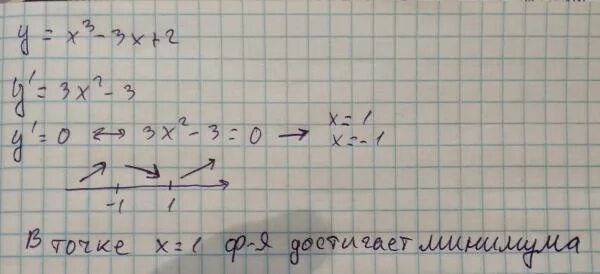 y = x³ - 3x + 2
y' = 3x² - 3
y' = 0 ↔ 3x² - 3 = 0 → x = 1
x = -1
-1 1
В точке x = 1 ф-я достигает минимума